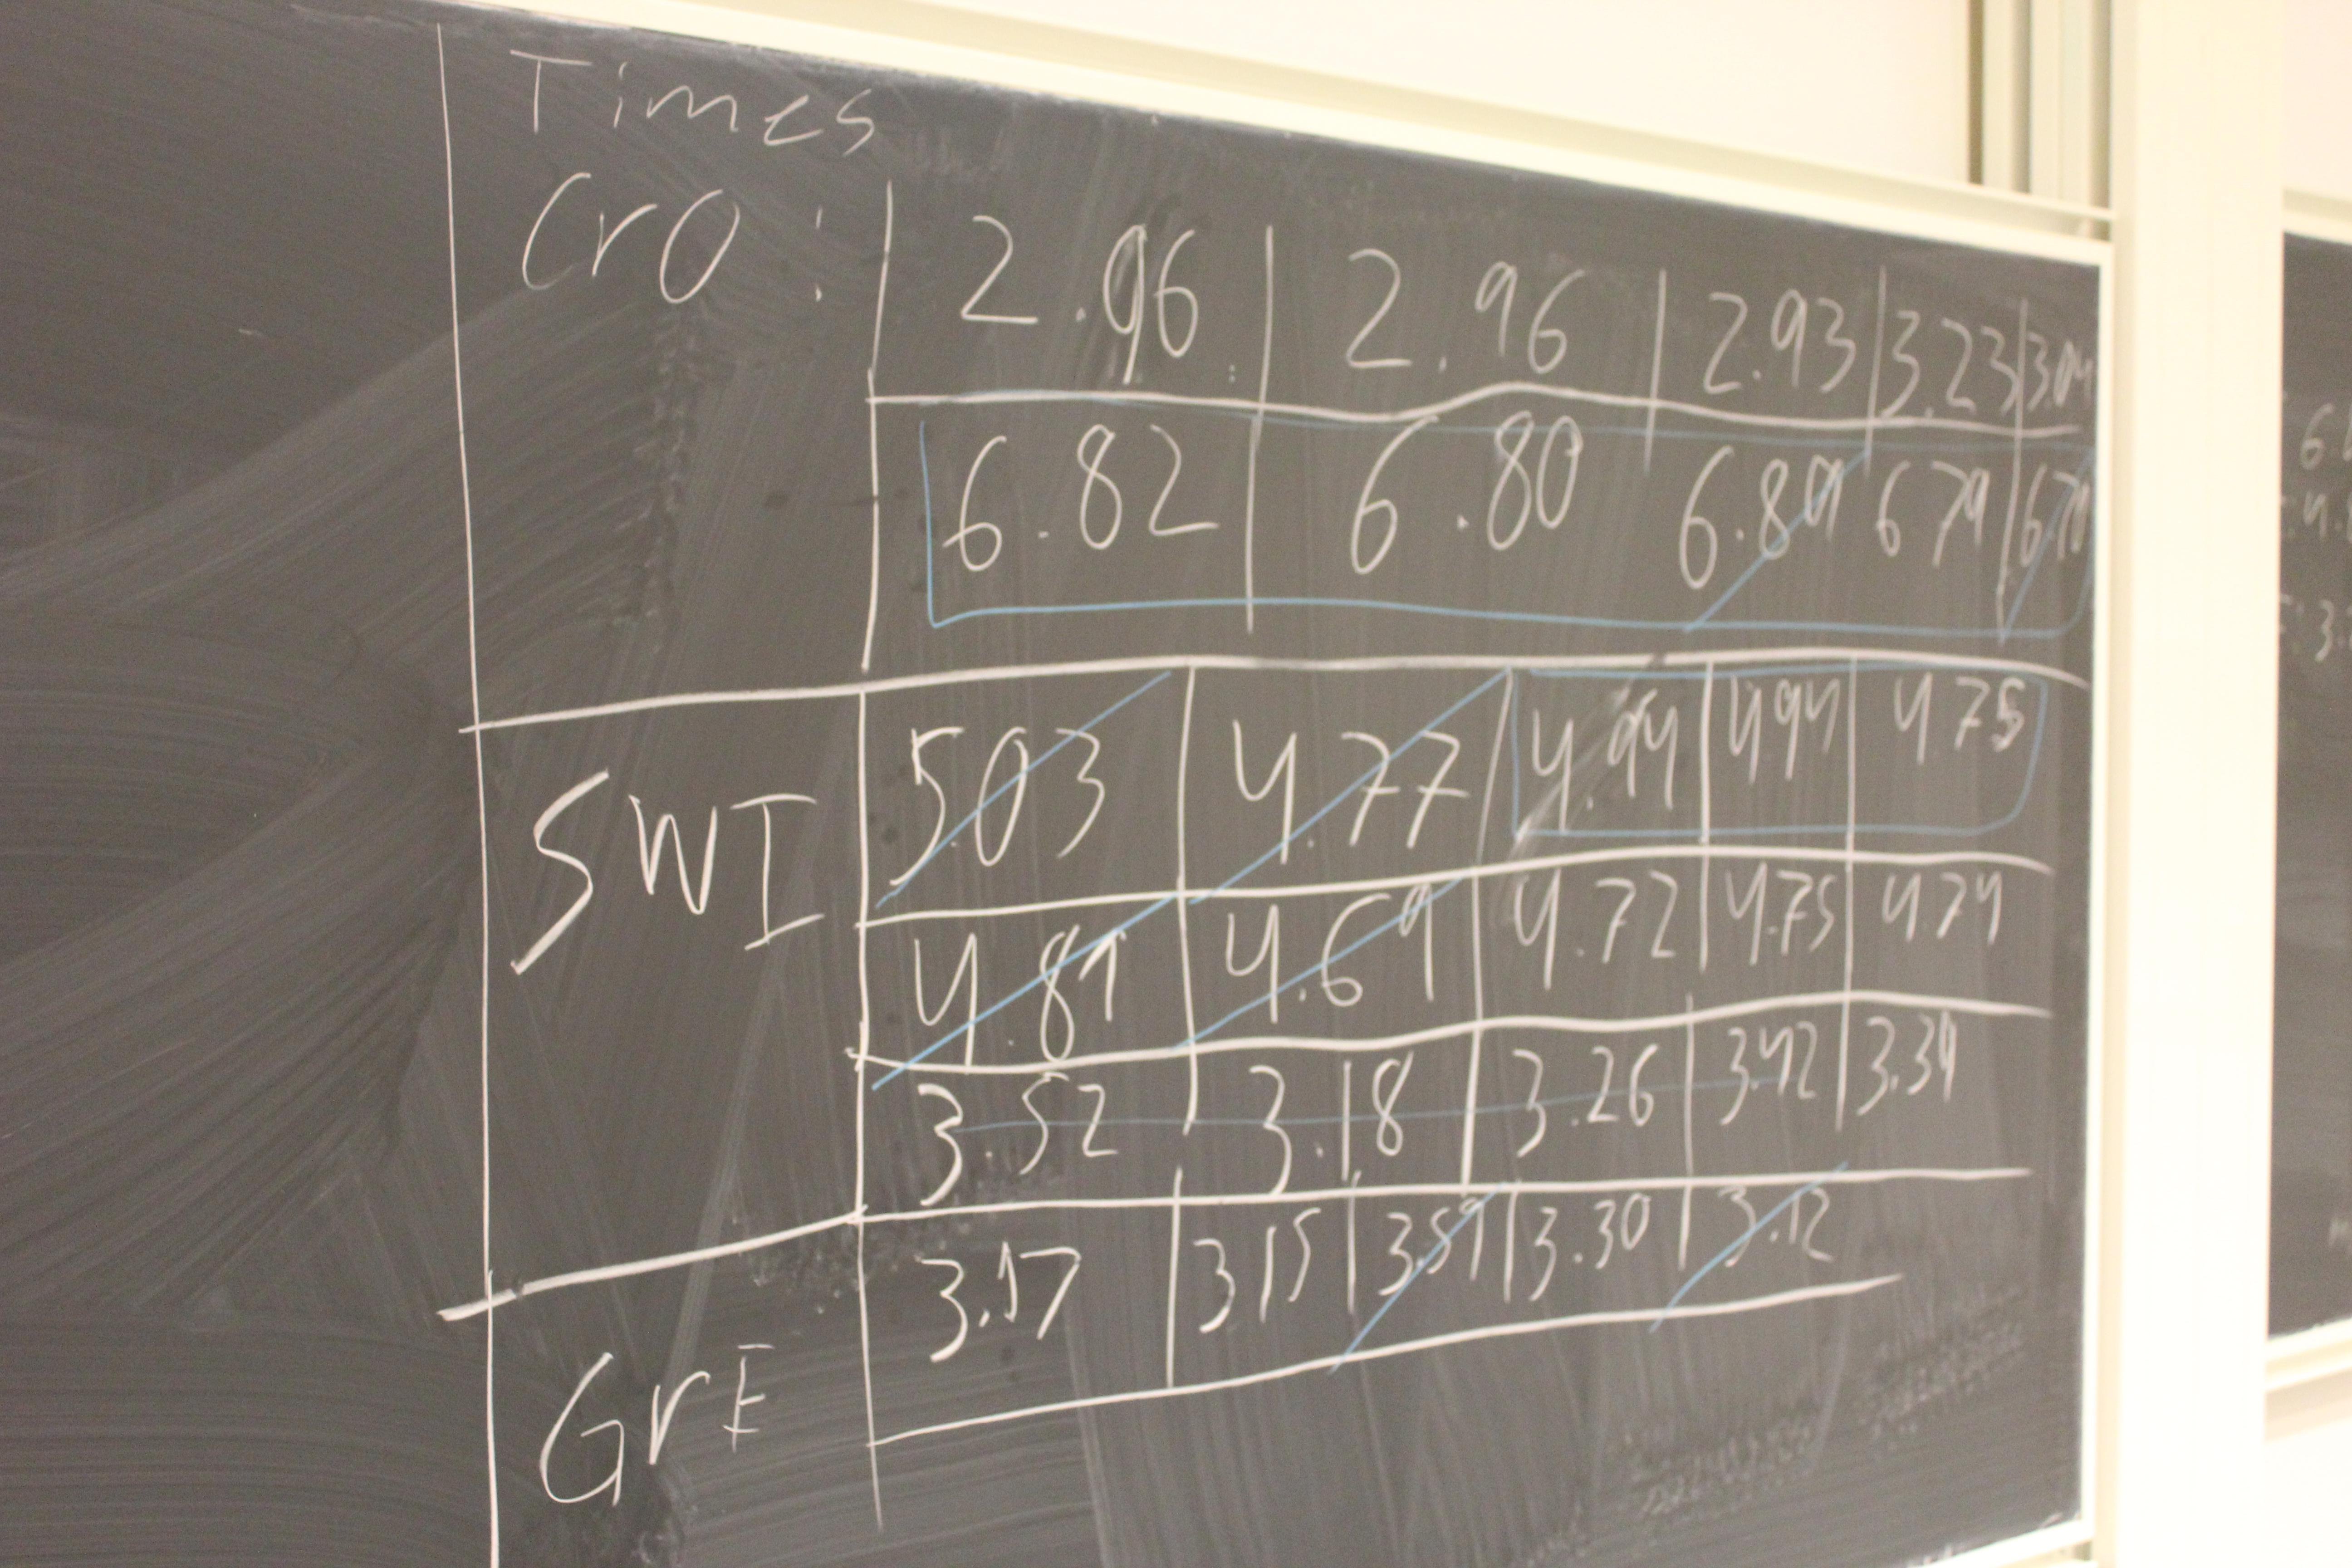 Times
CrO: 2.96 2.96 2.93 3.23 3.04
6.82 6.80 6.89 6.79 6.70
SWI 5.03 4.77 4.94 4.94 4.75
4.81 4.69 4.72 4.75 4.74
3.52 3.18 3.26 3.42 3.34
GrE 3.17 3.15 3.59 3.30 3.12